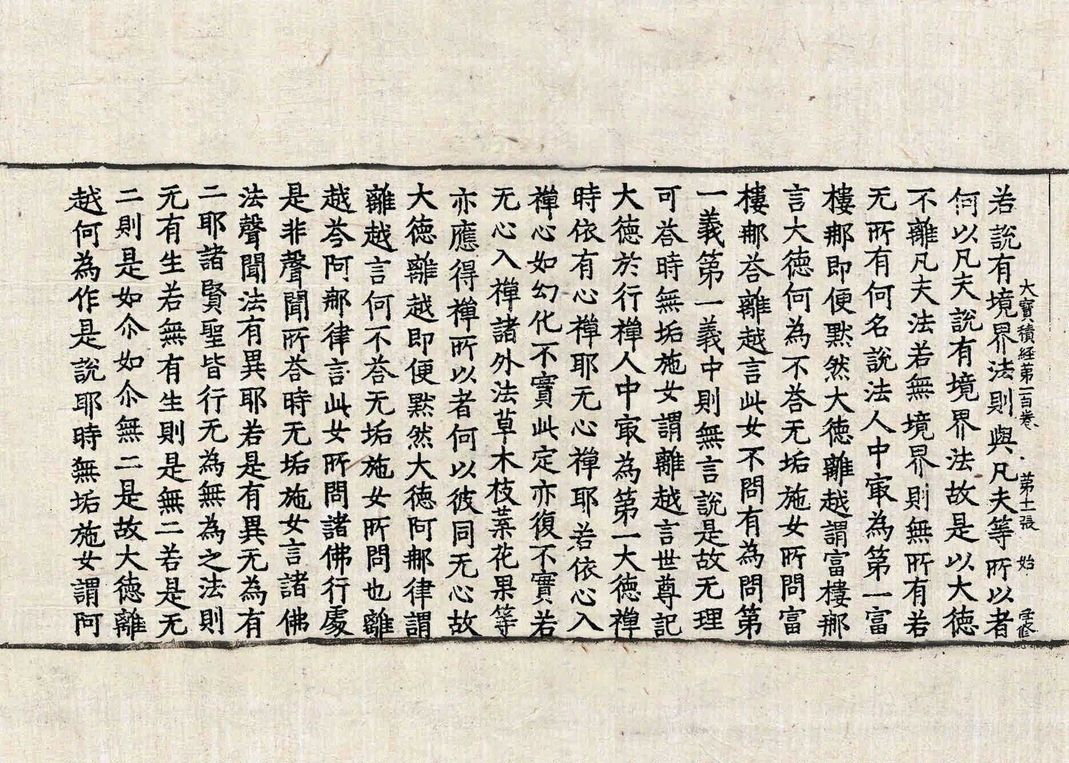 大寶積經第一百卷 第十一張 始
若說有境界法則與凡夫等所以者
何以凡夫說有境界法故是以大德
不離凡夫法若無境界則無所有若
无所有何名說法人中㝡為第一富
樓那即便黙然大德離越謂富樓那
言大德何為不荅无垢施女所問富
樓那荅離越言此女不問有為問第
一義第一義中則無言說是故无理
可荅時無垢施女謂離越言世尊記
大德於行禪人中㝡為第一大德禪
時依有心禪耶无心禪耶若依心入
禪心如幻化不實此定亦復不實若
无心入禪諸外法草木枝葉花果等
亦應得禪所以者何以彼同无心故
大德離越即便黙然大德阿那律謂
離越言何不荅无垢施女所問也離
越荅阿那律言此女所問諸佛行處
是非聲聞所荅時无垢施女言諸佛
法聲聞法有異耶若是有異无為有
二耶諸賢聖皆行无為無為之法則
无有生若無有生則是無二若是无
二則是如尒如尒無二是故大德離
越何為作是說耶時無垢施女謂阿